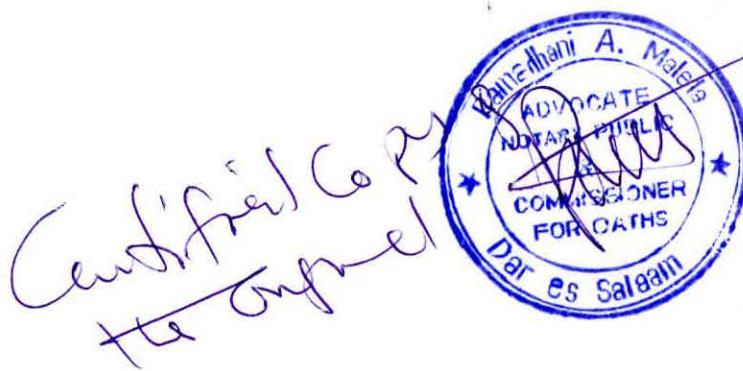 Certified Copy
the Original
Ramadhani A. Malela
ADVOCATE
NOTARY PUBLIC
&
COMMISSIONER
FOR OATHS
Dar es Salaam